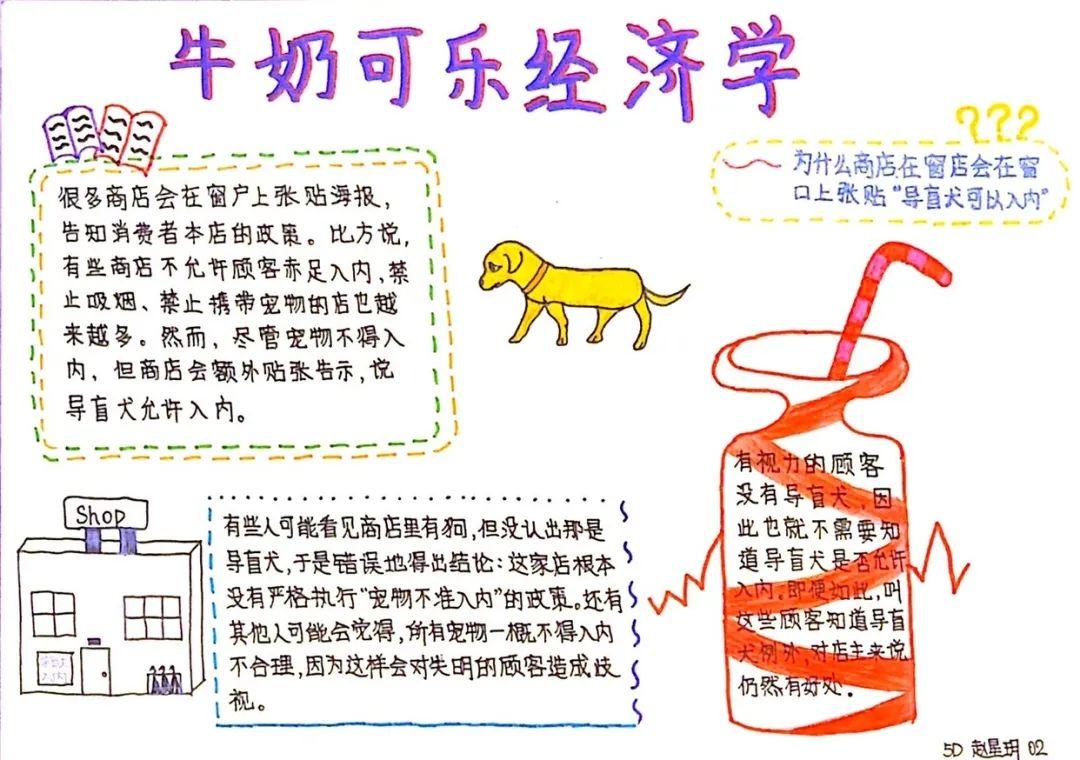 牛奶可乐经济学
???
为什么商店在窗店会在窗
口上张贴“导盲犬可以入内”
很多商店会在窗户上张贴海报，
告知消费者本店的政策。比方说，
有些商店不允许顾客赤足入内，禁
止吸烟、禁止携带宠物的店也越
来越多。然而，尽管宠物不得入
内，但商店会额外贴张告示，说
导盲犬允许入内。
Shop
有些人可能看见商店里有狗，但没认出那是
导盲犬，于是错误地得出结论：这家店根本
没有严格执行“宠物不准入内”的政策。还有
其他人可能会觉得，所有宠物一概不得入内
不合理，因为这样会对失明的顾客造成歧
视。
有视力的顾客
没有导盲犬，因
此也就不需要知
道导盲犬是否允许
入内。即便如此，叫
这些顾客知道导盲
犬例外，对店主来说
仍然有好处。
5D 赵星玥 02